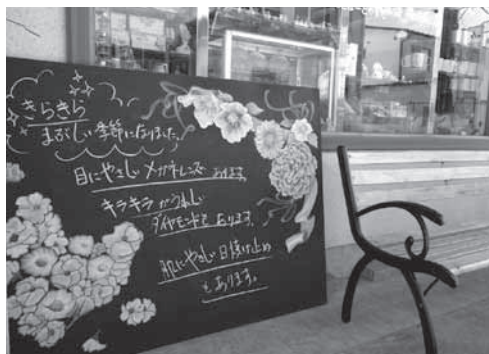 きらきら
まぶしい季節になりました。
目にやさしい メガネレンズ あります。
キラキラ かうれしい
ダイヤモンドも あります。
肌にやさしい 日焼け止め
も あります。